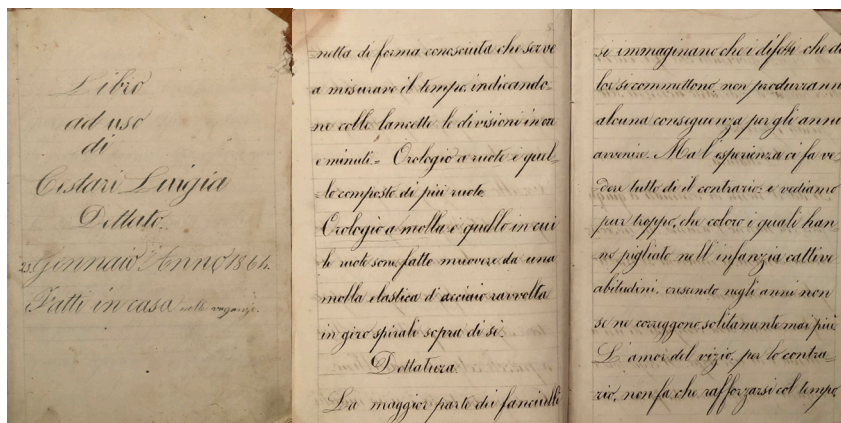 Libro
ad uso
di
Cestari Luigia
Dettato.
23. Gennaio Anno 1864.
Fatti in casa nelle vaganze.
2
netta di forma conosciuta che serve
a misurare il tempo, indicando-
ne colle lancette le divisioni in ore
e minuti= Orologio a ruote è quel-
lo composto di più ruote
Orologio a molla è quello in cui
le ruote sono fatte muovere da una
molla elastica d'acciaio ravvolta
in giro spirali sopra di sè.
Dettatura
La maggior parte dei fanciulli
si immaginano che i difetti che da
lor si commettono non produrrann
alcuna conseguenza per gli anni
avvenire. Ma l'esperienza ci fa ve-
dere tutto di il contrario: e vediamo
pur troppo, che coloro i quali han-
no pigliato nell'infanzia cattive
abitudini, crescendo negli anni non
se ne correggono solitamente mai più.
L'amor del vizio, per lo contra-
rio, non fa che rafforzarsi col tempo,